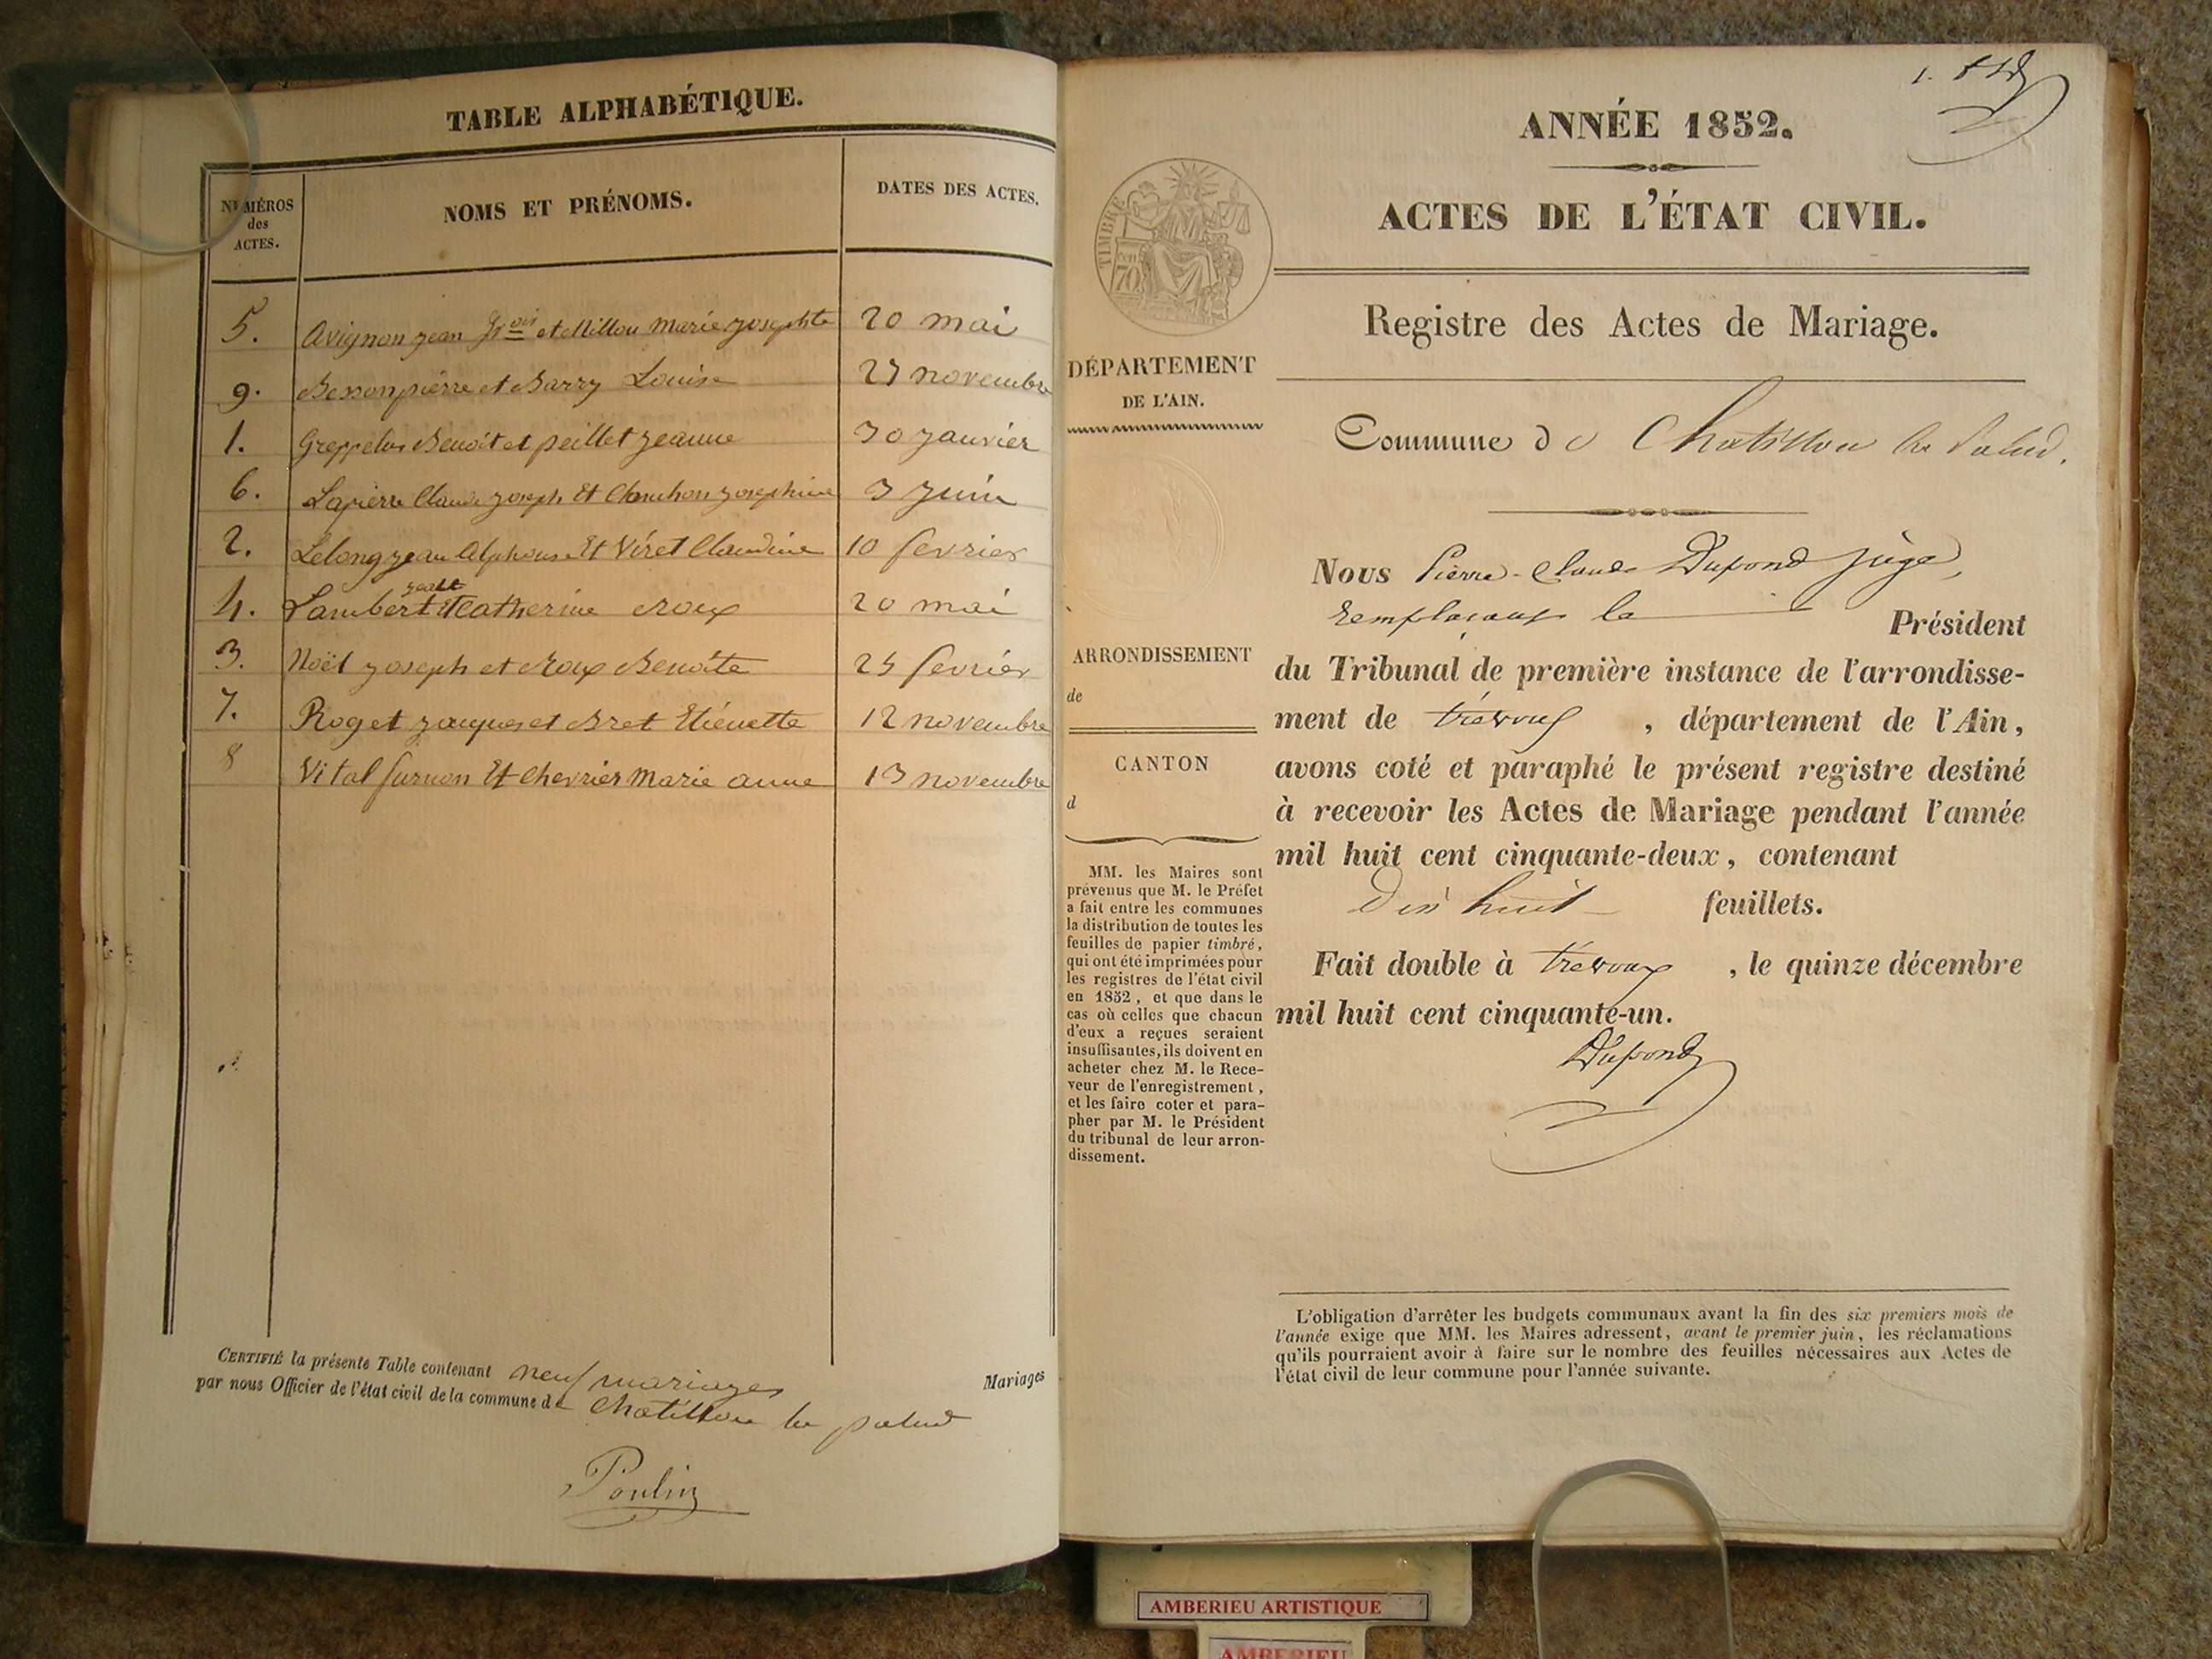 TABLE ALPHABÉTIQUE.
NUMÉROS
des
ACTES.
NOMS ET PRÉNOMS.
DATES DES ACTES.
5. Avignon Jean Fr.ois et Millon Marie Josephte 20 mai
9. Besson pierre et Barry Louise 27 novembre
1. Benoit et peillet Jeanne 30 Janvier
6. Lapierre Claude Joseph Et Josephine 3 Juin
2. Lelong Jean Alphonse Et Véret Claudine 10 fevrier
4. Lambert Jean Et Catherine Roux 20 mai
3. Noël Joseph et Roux Benoite fevrier
7. Roget Jacques et Bret Etiénette 12 novembre
8 Vital furnon Et Chevrier Marie anne 13 novembre
CERTIFIÉ la présente Table contenant neuf mariages Mariages
par nous Officier de l'état civil de la commune de Chatillon la palud
Poulin
ANNÉE 1852.
ACTES DE L'ÉTAT CIVIL.
TIMBRE
70
Registre des Actes de Mariage.
DÉPARTEMENT
DE L'AIN.
Commune de Chatillon la Palud.
ARRONDISSEMENT
de
CANTON
d
MM. les Maires sont
prévenus que M. le Préfet
a fait entre les communes
la distribution de toutes les
feuilles de papier timbré,
qui ont été imprimées pour
les registres de l'état civil
en 1852, et que dans le
cas où celles que chacun
d'eux a reçues seraient
insuffisantes, ils doivent en
acheter chez M. le Rece-
veur de l'enregistrement,
et les faire coter et para-
pher par M. le Président
du tribunal de leur arron-
dissement.
Nous Pierre-Claude Dupond juge,
remplaçant le Président
du Tribunal de première instance de l'arrondisse-
ment de trévoux, département de l'Ain,
avons coté et paraphé le présent registre destiné
à recevoir les Actes de Mariage pendant l'année
mil huit cent cinquante-deux, contenant
Dix huit feuillets.
Fait double à trévoux, le quinze décembre
mil huit cent cinquante-un.
Dupond
L'obligation d'arrêter les budgets communaux avant la fin des six premiers mois de
l'année exige que MM. les Maires adressent, avant le premier juin, les réclamations
qu'ils pourraient avoir à faire sur le nombre des feuilles nécessaires aux Actes de
l'état civil de leur commune pour l'année suivante.
AMBERIEU ARTISTIQUE
AMBERIEU